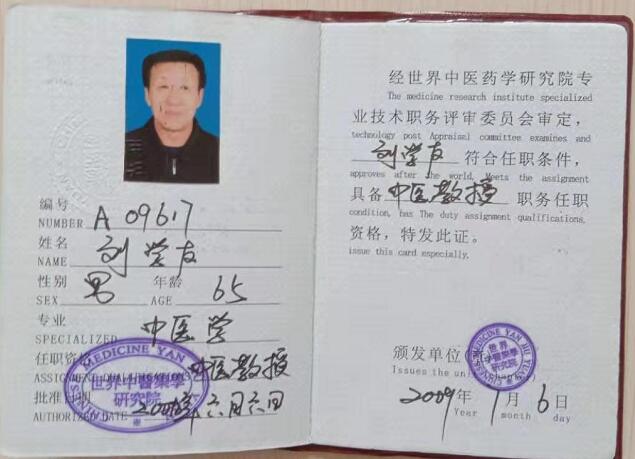 编号
NUMBER A 09617
姓名
NAME 刘学友
性别 男 年龄 65
SEX AGE
专业
SPECIALIZED 中医学
任职资格
ASSIGNMENT QUALIFICATIONS 中医教授
批准日期
AUTHORIZED DATE 年六月六日
MEDICINE YAN
世界中醫藥學
研究院
经世界中医药学研究院专
The medicine research institute specialized
业技术职务评审委员会审定，
technology post Appraisal committee examines and
刘学友 符合任职条件，
approves after the world, Meets the assignment
具备 中医教授 职务任职
condition, has The duty assignment qualifications,
资格，特发此证。
issue this card especially.
颁发单位
Issues the unit
世界
中醫藥學
研究院
2009年 月6日
Year month day